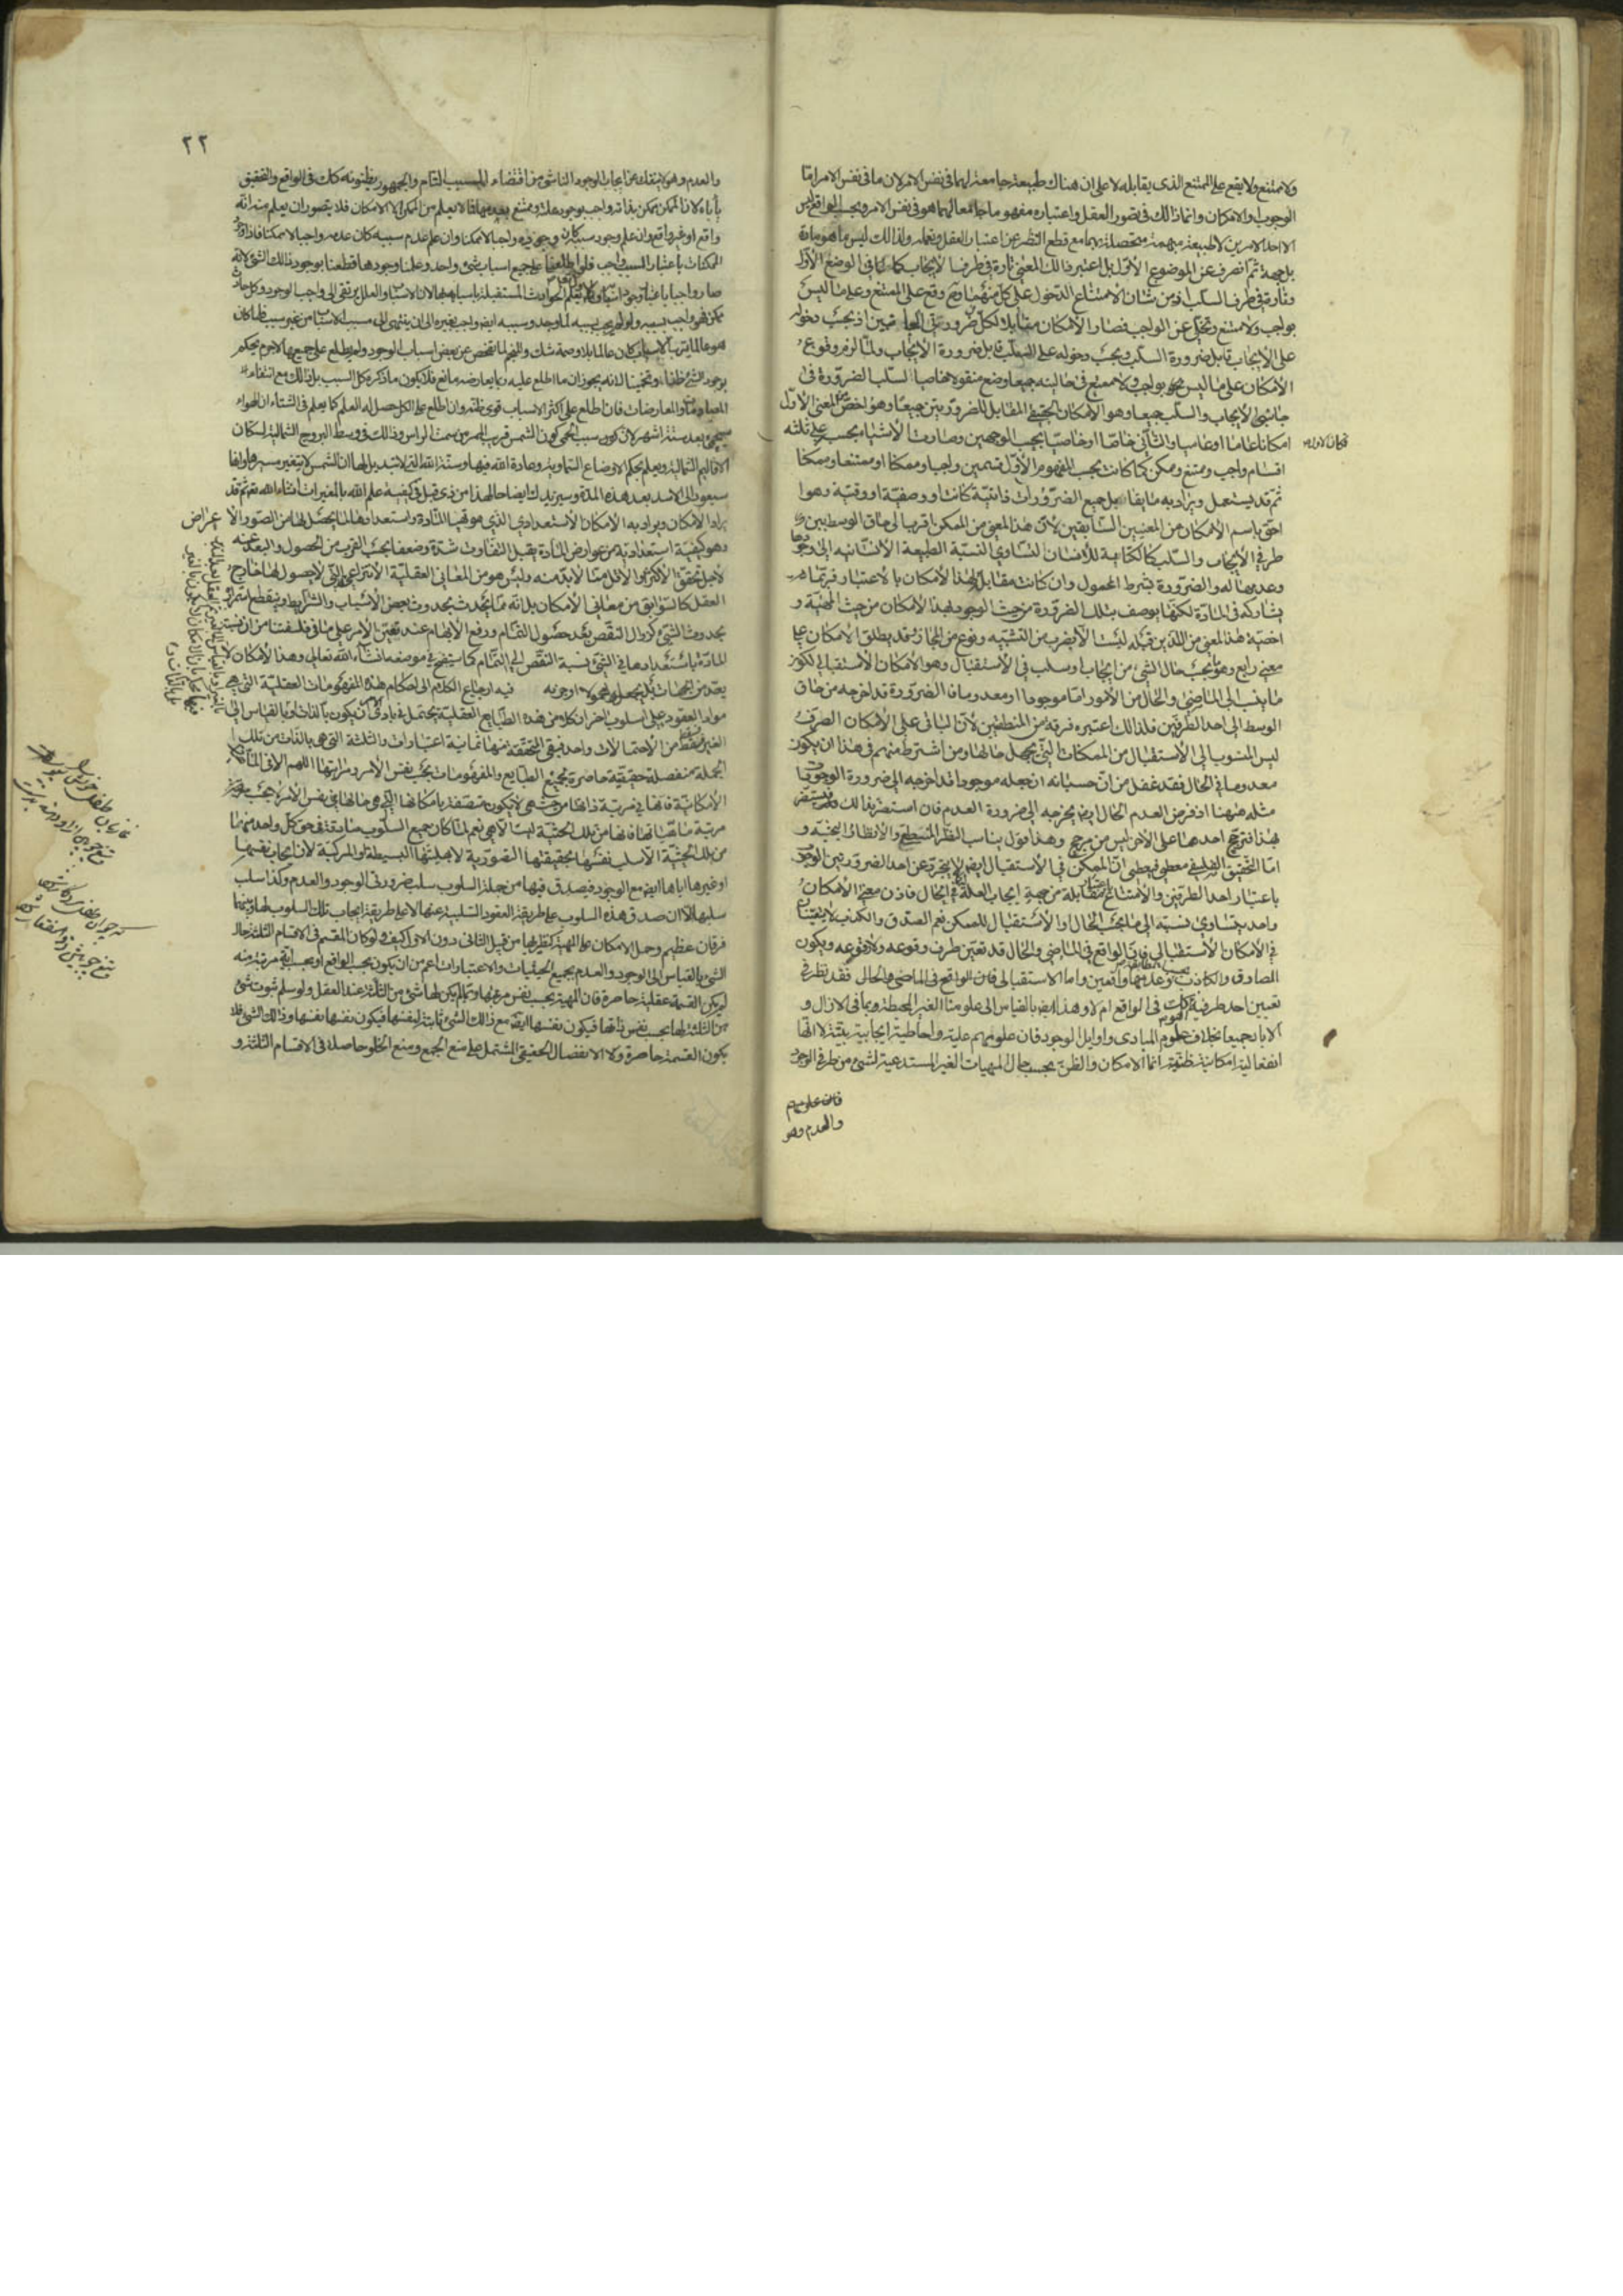 ولا ممتنع ولا يقع على الممتنع الذى يقابله لا على ان هناك طبيعة جامعة لهما فى نفس الامر لان ما فى نفس الامر اما
الوجوب او الامكان وانما ذلك فى تصور العقل واعتباره مفهوما جامعا لهما هو فى نفس الامر وبحسب الواقع ليس
الا احد الامرين لا طبيعة مبهمة متحصلة بهما مع قطع النظر عن اعتبار العقل وتعمله ولذلك ليس ما هو مادة
بل جهة ثم انصرف عن الموضوع الاول بل اعتبر ذلك المعنى تارة فى طرف الايجاب كما كان فى الوضع الاول
وتارة فى طرف السلب اذ من شان الامتناع الدخول على كل منهما وقع على الممتنع وعلى ما ليس
بواجب ولا ممتنع وتخلى عن الواجب فصار الامكان مقابلا لكل من ضرورتى الجانبين اذ بحسب دخوله
على الايجاب قابل ضرورة السلب وبحسب دخوله على السلب قابل ضرورة الايجاب ولما لزم وقوع
الامكان على ما ليس بواجب ولا ممتنع فى حالتيه جميعا وضع منقولا خاصيا لسلب الضرورة فى
جانبى الايجاب والسلب جميعا وهو الامكان الحقيقى المقابل للضرورتين جميعا وهو اخص من المعنى الاول
امكانا عاما او عاميا والثانى خاصا او خاصيا بحسب الوجهين وصارت الاشياء بحسبه على ثلثة
اقسام واجب وممتنع وممكن كما كانت بحسب المفهوم الاول قسمين واجبا وممكنا او ممتنعا وممكنا
ثم قد يستعمل ويراد به ما يقابل جميع الضرورات ذاتية كانت او وصفية او وقتية وهو
احق باسم الامكان من المعنيين السابقين لان هذا المعنى من الممكن اقرب الى حاق الوسط بين
طرفى الايجاب والسلب كالكتابة للانسان لتساوى نسبة الطبيعة الانسانية الى وجودها
وعدمها له والضرورة بشرط المحمول وان كانت مقابلة لهذا الامكان بالاعتبار فربما
يشاركه فى المادة لكنها يوصف بتلك الضرورة من حيث الوجود وبهذا الامكان من حيث المهية و
اخصية هذا المعنى من اللذين قبله ليست الا بضرب من التشبيه ونوع من المجاز وقد يطلق الامكان على
معنى رابع وهو ما بحسب حال الشئ من ايجاب او سلب فى الاستقبال وهو الامكان الاستقبالى لكون
ما ينسب الى الماضى والحال من الامور اما موجودا او معدوما فالضرورة قد اخرجه من حاق
الوسط الى احد الطرفين فلذلك اعتبره فرقة من المنطقيين لان الباقى على الامكان الصرف
ليس المنسوب الى الاستقبال من الممكنات التى يجهل حالها ومن اشترط منهم فى هذا ان يكون
معدوما فى الحال فقد غفل من ان حسبانه ان جعله موجودا قد اخرجه الى ضرورة الوجود
مثله ههنا اذ فرض العدم الحال ايضا يخرجه الى ضرورة العدم فان استضر بذلك
بهذا فترجيح احدهما على الاخر ليس من مرجح وهذا قول يناسب النظر المنطقى والانظار البحثية و
اما التحقيق الفلسفى فيعطى ان الممكن فى الاستقبال ايضا لا يتجرد عن احد الضرورتين الوجوب
باعتبار احد الطرفين والامتناع باعتبار مقابله من جهة ايجاب العلة له كما فى الحال فاذن معنى الامكان
واحد يتساوى نسبته الى ما بحسب الحال والاستقبال للممكن نعم الصدق والكذب لا يتعينان
فى الامكان الاستقبالى فان الواقع فى الماضى والحال قد تعين طرف وقوعه ولا وقوعه ويكون
الصادق والكاذب بحسب المطابقة وعدمها وانها متعين واما الاستقبالى فان الواقع فى الماضى والحال فقد نظر فى
تعين احد طرفيه اهو كذلك فى الواقع ام لا وهذا ايضا بالقياس الى علومنا الغير المحيطة وبما فى الازال و
الاباد جميعا بخلاف علوم المبادى واوايل الوجود فان علومهم علية واحاطية ايجابية بتية لا انها
انفعالية امكانية ظنية انما الامكان والظن بحسب حال المهيات الغير المستدعية لشئ من طرفى الوجود
والعدم وهو
٢٢
والعدم وهو لا ينفك عن ايجاب الوجود الناشى من اقتضاء السبب التام والجمهور يظنونه كذلك فى الواقع والتحقيق
يأباه لان الممكن يمكن بذاته واجب بوجود علته وممتنع بعدمها فلا يعلم من الممكن الا الامكان فلا يتصور ان يعلم منه انه
واقع او غير واقع وان علم وجود سببه كان وجوده واجبا لا ممكنا وان علم عدم سببه كان عدمه واجبا لا ممكنا فاذا وجود
الممكنات باعتبار السبب واجب فلو اطلعنا على جميع اسباب شئ واحد وعلمنا وجودها قطعنا بوجود ذلك الشئ لانه
صار واجبا باعتبار وجود اسبابه والاول تعالى يعلم الحوادث المستقبلة باسبابها لان الاسباب والعلل يرتقى الى واجب الوجود وكل حادث
ممكن فهو واجب بسببه ولو لم يجب بسببه لما وجد وسببه ايضا واجب بغيره الى ان ينتهى الى مسبب الاسباب من غير سبب فلما كان
هو عالما بترتيب الاسباب كان عالما بلا وصمة شك والمنجم لما تفحص عن بعض اسباب الوجود ولم يطلع على جميعها لا جرم يحكم
بوجود الشئ ظنا وتخمينا لانه يجوز ان ما اطلع عليه ربما يعارضه مانع فلا يكون ما ذكره كل السبب بل ذلك مع انتفاء
المعارضات فان اطلع على اكثر الاسباب قوى ظنه وان اطلع على الكل حصل له العلم كما يعلم فى الشتاء ان الهواء
سيحمى بعد ستة اشهر لان سبب الحمى كون الشمس قريب الممر من سمت الراس وذلك فى وسط البروج الشمالية لسكان
الاقاليم الشمالية ويعلم بحكم الاوضاع السماوية وعادة الله فيها وسنة الله التى لا تبديل لها ان الشمس لا يتغير مسيرها وانها
سيعود الى الاسد بعد هذه المدة وسيزيدك ايضاحا لهذا من ذى قبل فى كيفية علم الله بالمتغيرات انشاء الله تعالى ثم قد
يراد الامكان ويراد به الامكان الاستعدادى الذى هو تهيأ المادة واستعدادها لما يحصل لها من الصور والاعراض
وهو كيفية استعدادية من عوارض المادة يقبل التفاوت شدة وضعفا بحسب القرب من الحصول والبعد عنه
لاجل تحقق الاكثر والاقل مما لابد منه وليس هو من المعانى العقلية الانتزاعية التى لا حصول لها خارج
العقل كالسوابق من معانى الامكان بل انه مما يحدث بحدوث بعض الاسباب والشرايط وينقطع استمراره
بحدوث الشئ كزوال النقص بعد حصول التمام ورفع الابهام عند تعين الامر على ما فى فلسفتنا من ان نسبة
المادة باستعدادها فى الشئ نسبة النقص الى التمام كما سيتضح فى موضعه انشاء الله تعالى وهذا الامكان لا
يعد من الجهات بل يجعل محمولا فيه ارجاع الكلام الى احكام هذه المفهومات العقلية التى هى
مواد العقود على اسلوب اخر ان كلا من هذه الطبايع العقلية يحتمل فى بادى الامر ان يكون بالذات او بالقياس الى
الغير فيسقط من الاحتمالات واحد فبقى المتحققة منها ثمانية اعتبارات والثلثة التى هى بالذات من تلك
الجملة منفصلة حقيقية حاصرة لجميع الطبايع والمفهومات بحسب نفس الامر ومراتبها اللهم الا فى المهيات
الامكانية فانها فى مرتبة ذاتها من حيث هى لا يكون متصفة بامكانها التى هى حالها فى نفس الامر لا بحسب
مرتبة ماهياتها فانها من تلك الحيثية ليست الا هى نعم لما كان جميع السلوب صادقة فى حق كل واحدة منها
من تلك الحيثية الا سلب نفسها بحقيقتها التصورية لا بهليتها البسيطة او المركبة لان ايجاب نفسها
او غيرها اياها ايضا مع الوجود فيصدق فيها من جملة السلوب سلب ضرورتى الوجود والعدم وكذا سلب
سلبها الا ان صدق هذه السلوب على طريقة العقود السلبية عنها لا على طريقة ايجاب تلك السلوب لها وبينهما
فرقان عظيم وحمل الامكان على المهية كنظيرها من قبيل الثانى دون الاول كيف ولو كان المقسم فى الاقسام الثلثة حال
الشئ بالقياس الى الوجود والعدم بجميع الحيثيات والاعتبارات اعم من ان يكون بحسب الواقع او بحسب اية مرتبة منه
لم يكن القسمة عقلية حاصرة فان المهية بحسب نفس مرتبتها ربما لم يكن لها شئ من الثلثة عند العقل ولو سلم ثبوت شئ
من الثلثة لها بحسب نفس ذاتها فيكون نفسها ايضا مع ذلك الشئ ثابتة لنفسها فيكون نفسها نفسها وذلك الشئ فلا
يكون القسمة حاصرة وكلا الانفصال الحقيقى المشتمل على منع الجمع ومنع الخلو حاصلة فى الاقسام الثلثة و